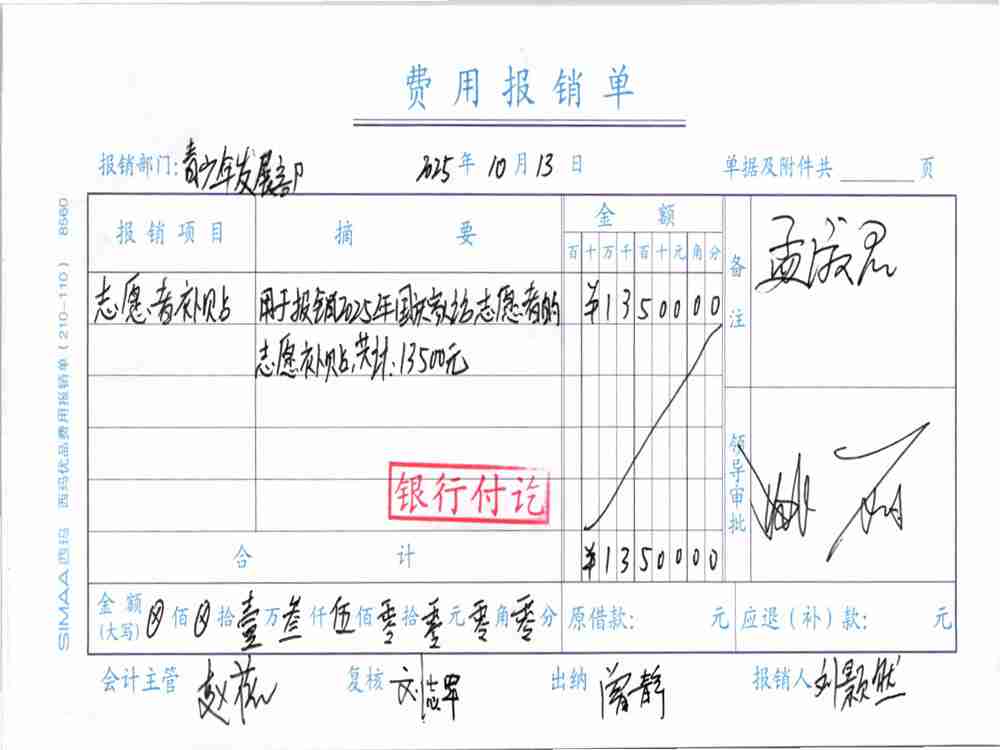 费用报销单
报销部门:青少年发展部 2025年10月13日 单据及附件共 页
报销项目 摘要 金额 备注
百十万千百十元角分
孟
志愿者补贴 用于报销2025年国庆 志愿者的 ¥1350000
志愿补贴,共计:13500元
领导审批
姚
银行付讫
合计 ¥1350000
金额(大写) ⊗佰⊗拾壹万叁仟伍佰零拾零元零角零分 原借款: 元 应退(补)款: 元
会计主管 赵 复核 刘志军 出纳 曾静 报销人 刘颢然
SIMAA西玛 西玛优品费用报销单(210-110) 8560